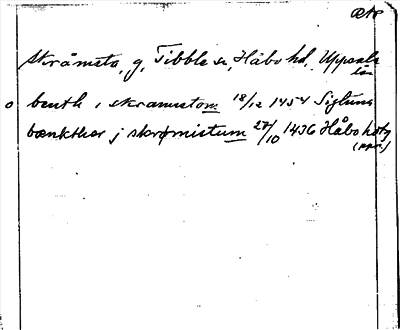 Skråmsta, g, Tibble sn, Håbo hd, Uppsala
län
o benth i skramstom 18/12 1454 Sigtuna
bænkther j skrømistum 27/10 1436 Håbo